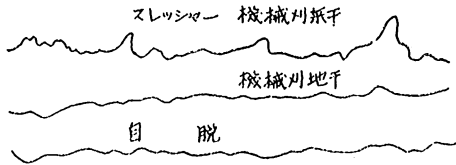 スレッシャー 機械刈紙干
機械刈地干
自 脱